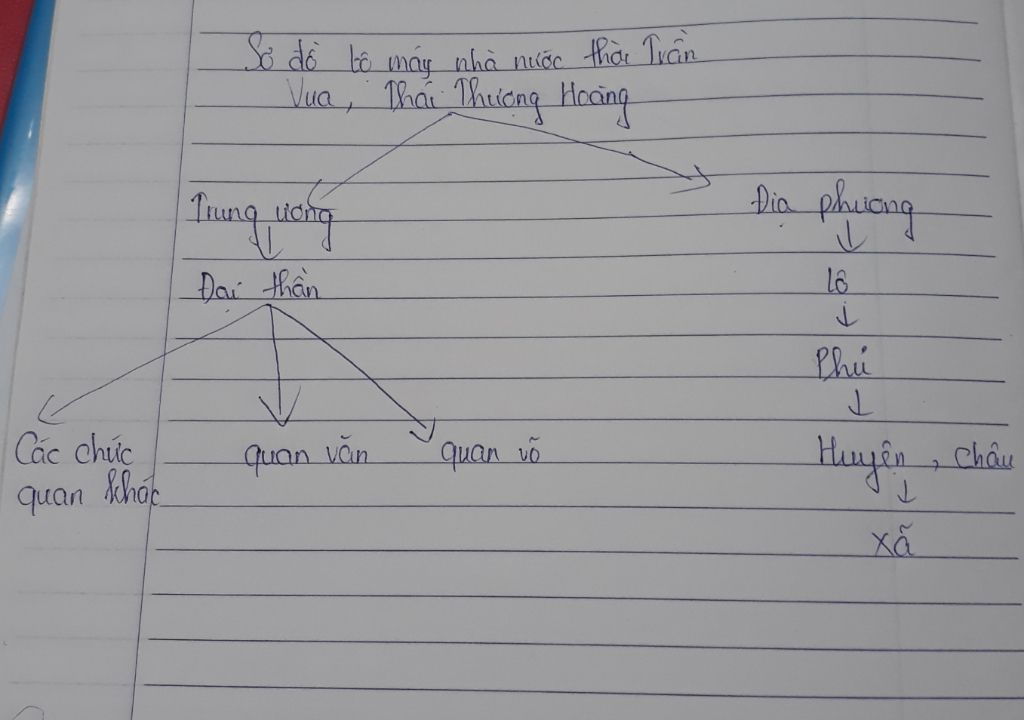 Sơ đồ bộ máy nhà nước thời Trần
Vua, Thái Thượng Hoàng
Trung ương
Địa phương
Đại thần
lộ
Phủ
Các chức
quan khác
quan văn
quan võ
Huyện, châu
xã